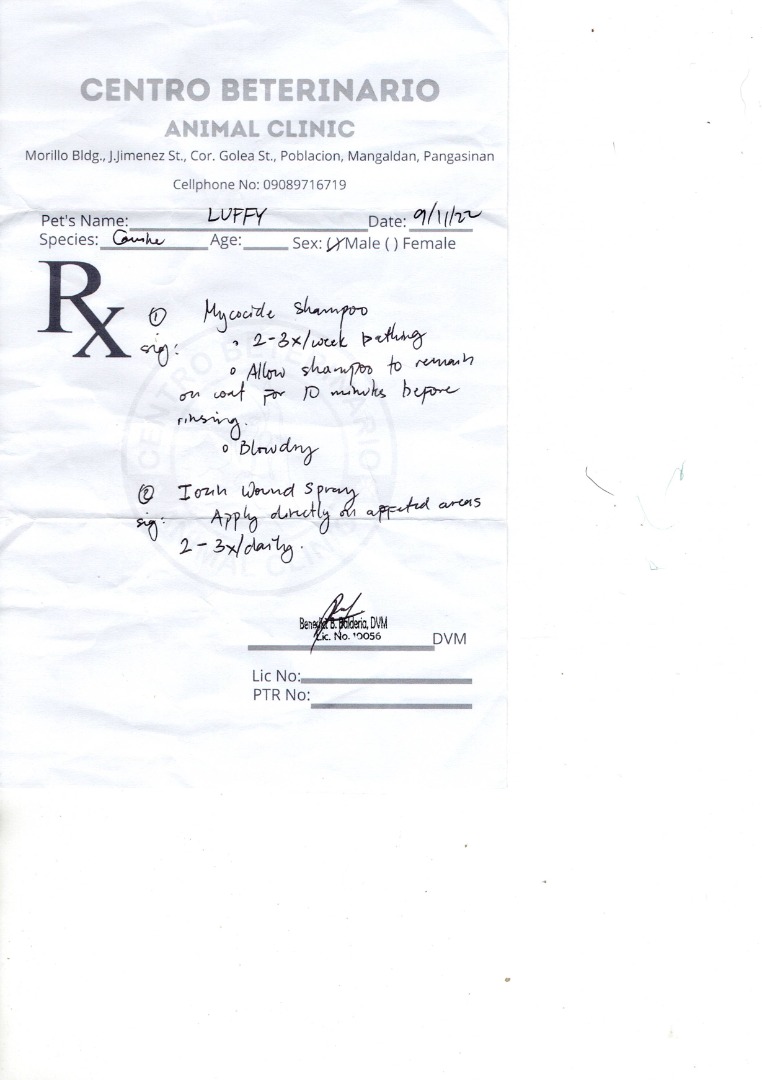 CENTRO BETERINARIO
ANIMAL CLINIC
Morillo Bldg., J.Jimenez St., Cor. Golea St., Poblacion, Mangaldan, Pangasinan
Cellphone No: 09089716719
Pet's Name: LUFFY Date: 9/11/22
Species: Age: Sex: (/) Male ( ) Female
Rx
① Mycocide Shampoo
sig: • 2-3x/week bathing
• Allow shampoo to remain
on coat for 10 minutes before
rinsing.
• Blowdry
② Wound Spray
sig: Apply directly on affected areas
2-3x/daily.
CENTRO BETERINARIO
ANIMAL CLINIC
Benedict B. Balderia, DVM
Lic. No. 10056
DVM
Lic No:
PTR No: